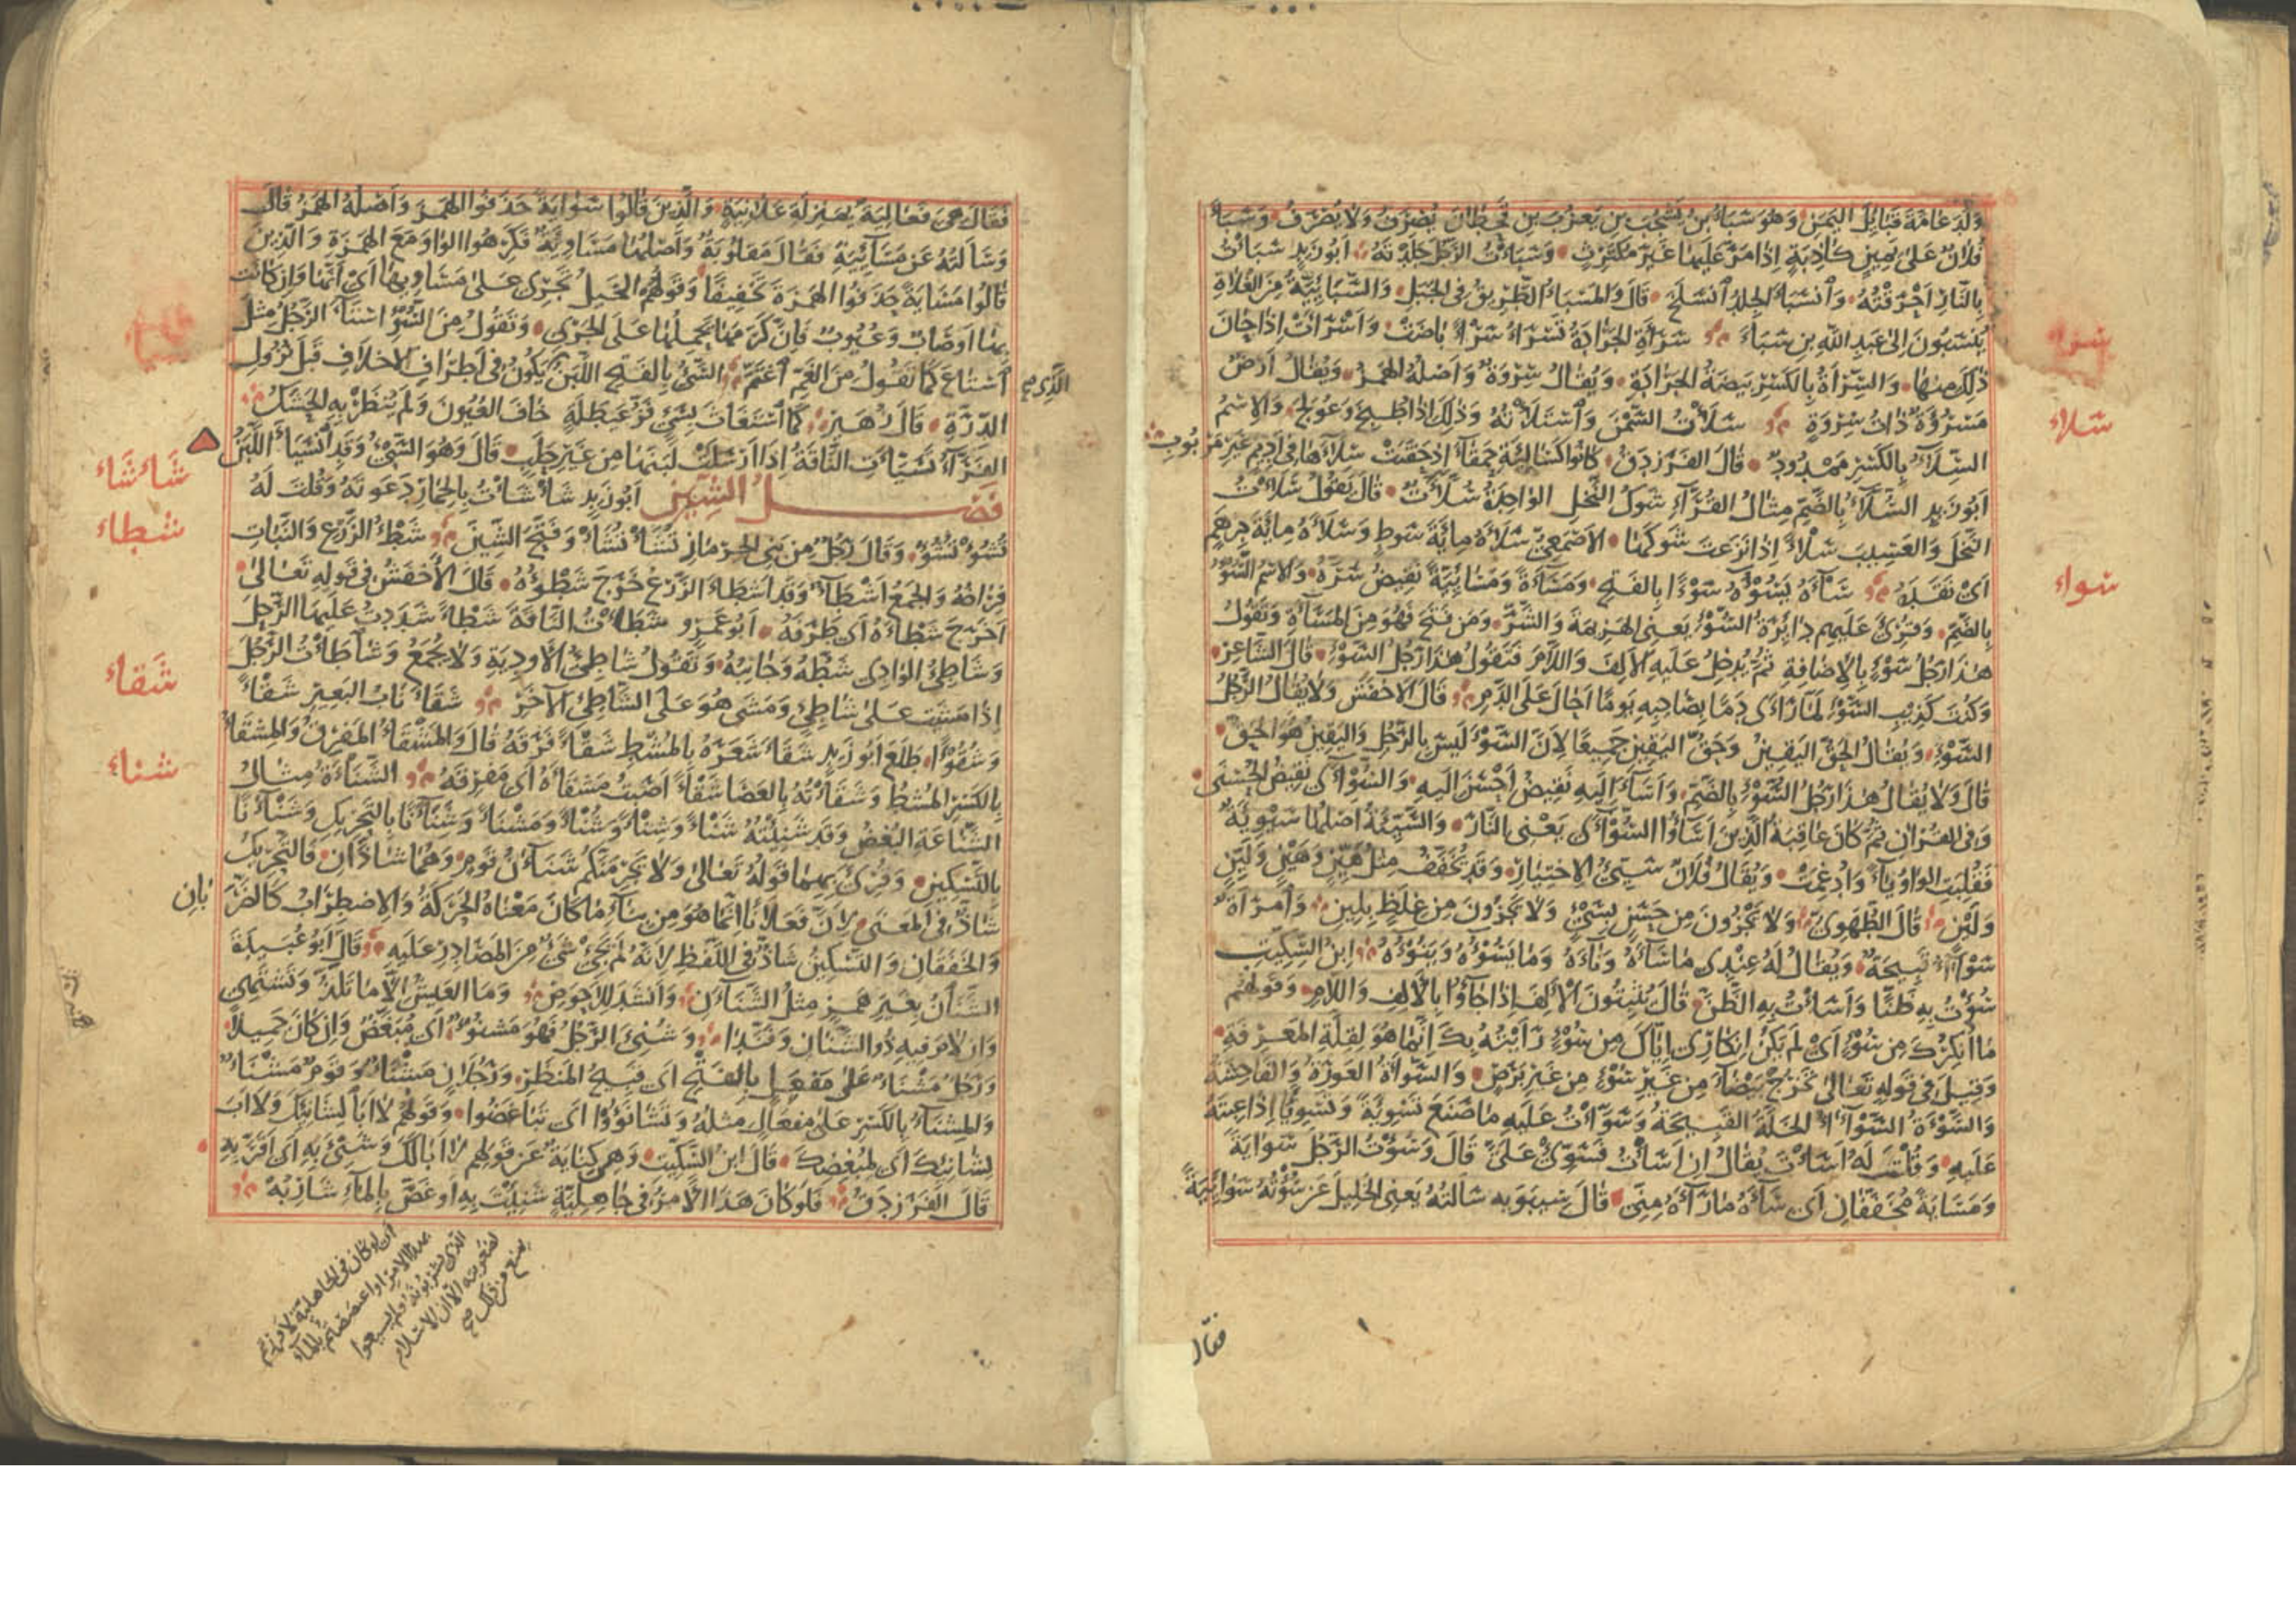 وَلَدَ عَامَّةَ قَبَائِلِ اليَمَنِ وَهُوَ سَبَأُ بنُ يَشْجُبَ بنِ يَعْرُبَ بنِ قَحْطَانَ يُصْرَفُ وَلَا يُصْرَفُ وَسَبَأَ
فُلَانٌ عَلَى يَمِينٍ كَاذِبَةٍ إِذَا مَرَّ عَلَيْهَا غَيْرَ مُكْتَرِثٍ وَسَبَأْتُ الرَّجُلَ جَلَدْتُهُ أَبُو زَيْدٍ سَبَأْتُ
بِالنَّارِ أَحْرَقْتُهُ وَانْسَبَأَ الجِلْدُ انْسَلَخَ قَالَ وَالمَسْبَأُ الطَّرِيقُ فِي الجَبَلِ وَالسَّبَائِيَّةُ مِنَ الغُلَاةِ
يُنْسَبُونَ إِلَى عَبْدِ اللهِ بنِ سَبَاءَ سَرَأَةِ الجَرَادَةُ تَسْرَأُ سَرْأً بَاضَتْ وَأَسْرَأَتْ إِذَا حَانَ
ذَلِكَ مِنْهَا وَالسِّرْأَةُ بِالكَسْرِ بَيْضَةُ الجَرَادَةِ وَيُقَالُ سِرْوَةٌ وَأَصْلُهُ الهَمْزُ وَيُقَالُ أَرْضٌ
مَسْرُؤَةٌ ذَاتُ سِرْوَةٍ سَلَأْتُ السَّمْنَ وَاسْتَلَأْتُهُ وَذَلِكَ إِذَا طُبِخَ وَعُولِجَ وَالاسْمُ
السِّلَاءُ بِالكَسْرِ مَمْدُودٌ قَالَ الفَرَزْدَقُ كَانُوا كَسَالِئَةٍ حَمْقَاءَ إِذْ حَقَنَتْ سِلَاءَهَا فِي أَدِيمٍ غَيْرِ مَرْبُوبِ
أَبُو زَيْدٍ السُّلَّاءُ بِالضَّمِّ مِثَالُ القُرَّاءِ شَوْكُ النَّخْلِ الوَاحِدَةُ سُلَّاءَةٌ قَالَ يَقُولُ سَلَأْتُ
النَّخْلَ وَالعَسِيبَ سَلْأً إِذَا نَزَعْتَ شَوْكَهَا الأَصْمَعِيُّ سَلَأَهُ مِائَةَ سَوْطٍ وَسَلَأَهُ مِائَةَ دِرْهَمٍ
أَيْ نَقَدَهُ سَاءَهُ يَسُوءُهُ سَوْءًا بِالفَتْحِ وَمَسَاءَةً وَمَسَائِيَةً نَقِيضُ سَرَّهُ وَالاسْمُ السُّوءُ
بِالضَّمِّ وَقُرِئَ عَلَيْهِمْ دَائِرَةُ السُّوءِ يَعْنِي الهَزِيمَةَ وَالشَّرَّ وَمَنْ فَتَحَ فَهُوَ مِنَ المَسَاءَةِ وَتَقُولُ
هَذَا رَجُلُ سَوْءٍ بِالإِضَافَةِ ثُمَّ يُدْخِلُ عَلَيْهِ الأَلِفَ وَاللَّامَ فَتَقُولُ هَذَا رَجُلُ السَّوْءِ قَالَ الشَّاعِرُ
وَكُنْتَ كَذِيبِ السَّوْءِ لَمَّا رَأَى دَمًا بِصَاحِبِهِ يَوْمًا أَحَالَ عَلَى الدَّمِ قَالَ الأَخْفَشُ وَلَا يُقَالُ الرَّجُلُ
السَّوْءِ وَيُقَالُ الحَقُّ اليَقِينُ وَحَقُّ اليَقِينِ جَمِيعًا لِأَنَّ السَّوْءَ لَيْسَ بِالرَّجُلِ وَاليَقِينُ هُوَ الحَقُّ
قَالَ وَلَا يُقَالُ هَذَا رَجُلُ السُّوءِ بِالضَّمِّ وَأَسَاءَ إِلَيْهِ نَقِيضُ أَحْسَنَ إِلَيْهِ وَالسُّوأَى نَقِيضُ الحُسْنَى
وَفِي القُرْآنِ ثُمَّ كَانَ عَاقِبَةُ الَّذِينَ أَسَاءُوا السُّوأَى يَعْنِي النَّارَ وَالسَّيِّئَةُ أَصْلُهَا سَيْوِئَةٌ
فَقُلِبَتِ الوَاوُ يَاءً وَأُدْغِمَتْ وَيُقَالُ فُلَانٌ سَيِّئُ الاخْتِيَارِ وَقَدْ يُخَفَّفُ مِثْلُ هَيِّنٍ وَهَيْنٍ وَلَيِّنٍ
وَلَيْنٍ قَالَ الطُّهَوِيُّ وَلَا يَجْزُونَ مِنْ حَسَنٍ بِسَيْءٍ وَلَا يَجْزُونَ مِنْ غِلَظٍ بِلِينِ وَامْرَأَةٌ
سَوْآءُ قَبِيحَةٌ وَيُقَالُ لَهُ عِنْدِي مَا سَاءَهُ وَنَاءَهُ وَمَا يَسُوءُهُ وَيَنُوءُهُ ابنُ السِّكِّيتِ
سُؤْتُ بِهِ ظَنًّا وَأَسَأْتُ بِهِ الظَّنَّ قَالَ يُثْبِتُونَ الأَلِفَ إِذَا جَاؤُا بِالأَلِفِ وَاللَّامِ وَقَوْلُهُمْ
مَا أُنْكِرُكَ مِنْ سُوءٍ أَيْ لَمْ يَكُنْ إِنْكَارِي إِيَّاكَ مِنْ سُوءٍ رَأَيْتُهُ بِكَ إِنَّمَا هُوَ لِقِلَّةِ المَعْرِفَةِ
وَقِيلَ فِي قَوْلِهِ تَعَالَى تَخْرُجْ بَيْضَاءَ مِنْ غَيْرِ سُوءٍ مِنْ غَيْرِ بَرَصٍ وَالسَّوْأَةُ العَوْرَةُ وَالفَاحِشَةُ
وَالسَّوْءَةُ السَّوْآءُ الخَلَّةُ القَبِيحَةُ وَسَوَّأْتُ عَلَيْهِ مَا صَنَعَ تَسْوِئَةً وَتَسْوِيئًا إِذَا عِبْتَهُ
عَلَيْهِ وَقُلْتَ لَهُ أَسَأْتَ يُقَالُ إِنْ أَسَأْتُ فَسَوِّئْ عَلَيَّ قَالَ وَسُؤْتُ الرَّجُلَ سَوَايَةً
وَمَسَايَةً مُخَفَّفَانِ أَيْ سَاءَهُ مَا رَآهُ مِنِّي قَالَ سِيبَوَيْهِ سَأَلْتُهُ يَعْنِي الخَلِيلَ عَنْ سُؤْتُهُ سَوَائِيَةً
سراء
سلاء
سواء
فقال
فَقَالَ هِيَ فَعَالِيَةٌ بِمَنْزِلَةِ عَلَانِيَةٍ وَالَّذِينَ قَالُوا سَوَايَةً حَذَفُوا الهَمْزَ وَأَصْلُهُ الهَمْزُ قَالَ
وَسَأَلْتُهُ عَنْ مَسَائِيَةٍ فَقَالَ مَقْلُوبَةٌ وَأَصْلُهَا مَسَاوِئَةٌ فَكَرِهُوا الوَاوَ مَعَ الهَمْزَةِ وَالَّذِينَ
قَالُوا مَسَايَةً حَذَفُوا الهَمْزَةَ تَخْفِيفًا وَقَوْلُهُمْ الخَيْلُ تَجْرِي عَلَى مَسَاوِيهَا أَيْ أَنَّهَا وَإِنْ كَانَتْ
بِهَا أَوْصَابٌ وَعُيُوبٌ فَإِنَّ كَرَمَهَا يَحْمِلُهَا عَلَى الجَرْيِ وَتَقُولُ مِنَ السُّوءِ اسْتَاءَ الرَّجُلُ مِثْلُ
اسْتَاعَ كَمَا تَقُولُ مِنَ الغَمِّ اغْتَمَّ السَّيْءُ بِالفَتْحِ اللَّبَنُ يَكُونُ فِي أَطْرَافِ الأَخْلَافِ قَبْلَ نُزُولِ
الدِّرَّةِ قَالَ زُهَيْرٌ كَمَا اسْتَغَاثَ بِسَيْءٍ فَزُّ غَيْطَلَةٍ خَافَ العُيُونَ وَلَمْ يُنْظَرْ بِهِ الحَشَكُ
الفَرَّاءُ تَسَيَّأَتِ النَّاقَةُ إِذَا أَرْسَلَتْ لَبَنَهَا مِنْ غَيْرِ حَلَبٍ قَالَ وَهُوَ السَّيْءُ وَقَدِ انْسَيَأَ اللَّبَنُ
فَصْلُ الشِّينِ أَبُو زَيْدٍ شَأْشَأْتُ بِالحِمَارِ دَعَوْتُهُ وَقُلْتَ لَهُ
تُشُؤْ تُشُؤْ وَقَالَ رَجُلٌ مِنْ بَنِي الحِرْمَازِ تَشَأْ تَشَأْ وَفَتَحَ الشِّينَ شَطْءُ الزَّرْعِ وَالنَّبَاتِ
فِرَاخُهُ وَالجَمْعُ أَشْطَاءٌ وَقَدْ أَشْطَأَ الزَّرْعُ خَرَجَ شَطْؤُهُ قَالَ الأَخْفَشُ فِي قَوْلِهِ تَعَالَى
أَخْرَجَ شَطْأَهُ أَيْ طَرَفَهُ أَبُو عَمْرٍو شَطَأْتُ النَّاقَةَ شَطْأً شَدَدْتُ عَلَيْهَا الرَّحْلَ
وَشَاطِئُ الوَادِي شَطُّهُ وَجَانِبُهُ وَتَقُولُ شَاطِئُ الأَوْدِيَةِ وَلَا يُجْمَعُ وَشَاطَأْتُ الرَّجُلَ
إِذَا مَشَيْتَ عَلَى شَاطِئٍ وَمَشَى هُوَ عَلَى الشَّاطِئِ الآخَرِ شَقَأَ نَابُ البَعِيرِ شَقْأً
وَشُقُوءًا طَلَعَ أَبُو زَيْدٍ شَقَأَ شَعَرَهُ بِالمُشْطِ شَقْأً فَرَقَهُ قَالَ وَالمَشْقَأُ المَفْرِقُ وَالمِشْقَأُ
بِالكَسْرِ المُشْطُ وَشَقَأْتُهُ بِالعَصَا شَقْأً أَصَبْتُ مَشْقَأَهُ أَيْ مَفْرِقَهُ الشَّنَاءَةُ مِثَالُ
الشَّنَاعَةِ البُغْضُ وَقَدْ شَنِئْتُهُ شَنْأً وَشِنْأً وَشُنْأً وَمَشْنَأً وَشَنَآنًا بِالتَّحْرِيكِ وَشَنْآنًا
بِالتَّسْكِينِ وَقُرِئَ بِهِمَا قَوْلُهُ تَعَالَى وَلَا يَجْرِمَنَّكُمْ شَنَآنُ قَوْمٍ وَهُمَا شَاذَّانِ فَالتَّحْرِيكُ
شَاذٌّ فِي المَعْنَى لِأَنَّ فَعَلَانًا إِنَّمَا هُوَ مِنْ بِنَاءِ مَا كَانَ مَعْنَاهُ الحَرَكَةُ وَالاضْطِرَابُ كَالضَّرَبَانِ
وَالخَفَقَانِ وَالتَّسْكِينُ شَاذٌّ فِي اللَّفْظِ لِأَنَّهُ لَمْ يَجِئْ شَيْءٌ مِنَ المَصَادِرِ عَلَيْهِ قَالَ أَبُو عُبَيْدَةَ
الشَّنَانُ بِغَيْرِ هَمْزٍ مِثْلُ الشَّنَآنِ وَأَنْشَدَ لِلأَحْوَصِ وَمَا العَيْشُ إِلَّا مَا تَلَذُّ وَتَشْتَهِي
وَإِنْ لَامَ فِيهِ ذُو الشَّنَانِ وَفَنَّدَا وَشُنِئَ الرَّجُلُ فَهُوَ مَشْنُوءٌ أَيْ مُبْغَضٌ وَإِنْ كَانَ جَمِيلًا
وَرَجُلٌ مَشْنَأٌ عَلَى مَفْعَلٍ بِالفَتْحِ أَيْ قَبِيحُ المَنْظَرِ وَرَجُلَانِ مَشْنَأٌ وَقَوْمٌ مَشْنَأٌ
وَالمِشْنَاءُ بِالكَسْرِ عَلَى مِفْعَالٍ مِثْلُهُ وَتَشَانَؤُوا أَيْ تَبَاغَضُوا وَقَوْلُهُمْ لَا أَبَا لِشَانِئِكَ وَلَا أَبَ
لِشَانِئِكَ أَيْ لِمُبْغِضِكَ قَالَ ابنُ السِّكِّيتِ وَهِيَ كِنَايَةٌ عَنْ قَوْلِهِمْ لَا أَبَا لَكَ وَشَنِئَ بِهِ أَيْ أَقَرَّ بِهِ
قَالَ الفَرَزْدَقُ فَلَوْ كَانَ هَذَا الأَمْرُ فِي جَاهِلِيَّةٍ شَنِئْتَ بِهِ أَوْ غَصَّ بِالمَاءِ شَارِبُهُ
شَاءشَاء
شطاء
شَقاء
شناء